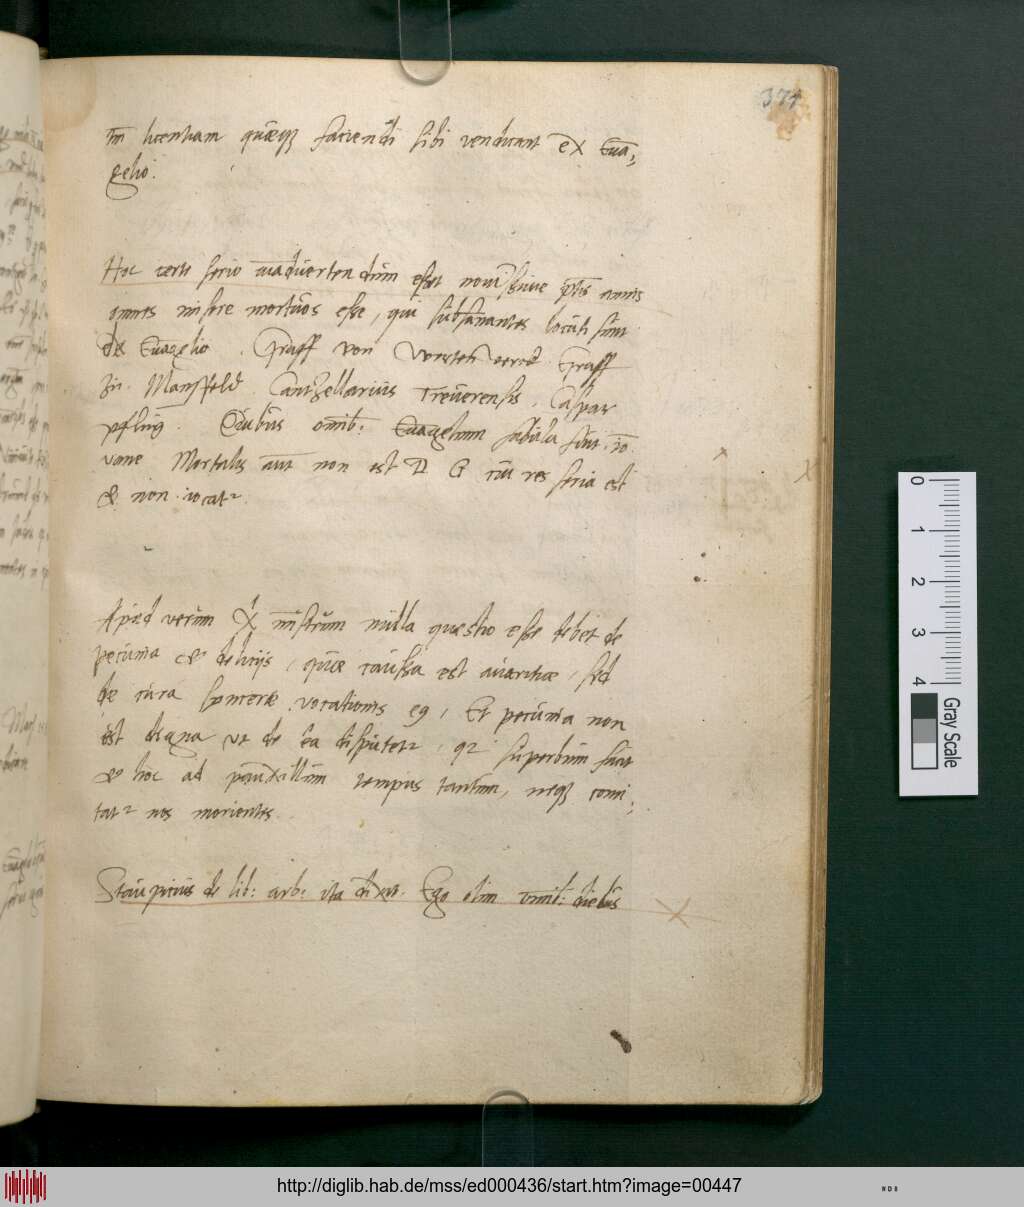 371
tm̄ licentiam quæq3 faciendi sibi vendicant ex Eua,,
gelio.
Hoc verò serio aīaduertendum esset nouissime ptis annis
omnes misere mortuos esse, qui subsannantes locuti sunt
de Euāgelio. Graff von Graff
zu Mansfeld. Cantzellarius Treuerensis. Caspar
pflug. Quibus omib: Euāgelium fabula fuit. Io
vane Mortalis aut non est D G cui res seria est
& non iocat2.
Apud verum X mīstrum nulla quæstio esse debet de
pecunia & delicijs, quæ caussa est auaritiæ, sed
de cura synceræ vocationis e9, Et pecunia non
est digna vt de ea disputet2, q2 superbum sunt
& hoc ad pauxillum tempus tantum, neq3 comi,,
tat2 nos morientes.
Staupicius de lib: arb: ita dixit. Ego olim omīb: diebus
http://diglib.hab.de/mss/ed000436/start.htm?image=00447
0 1 2 3 4
Gray Scale